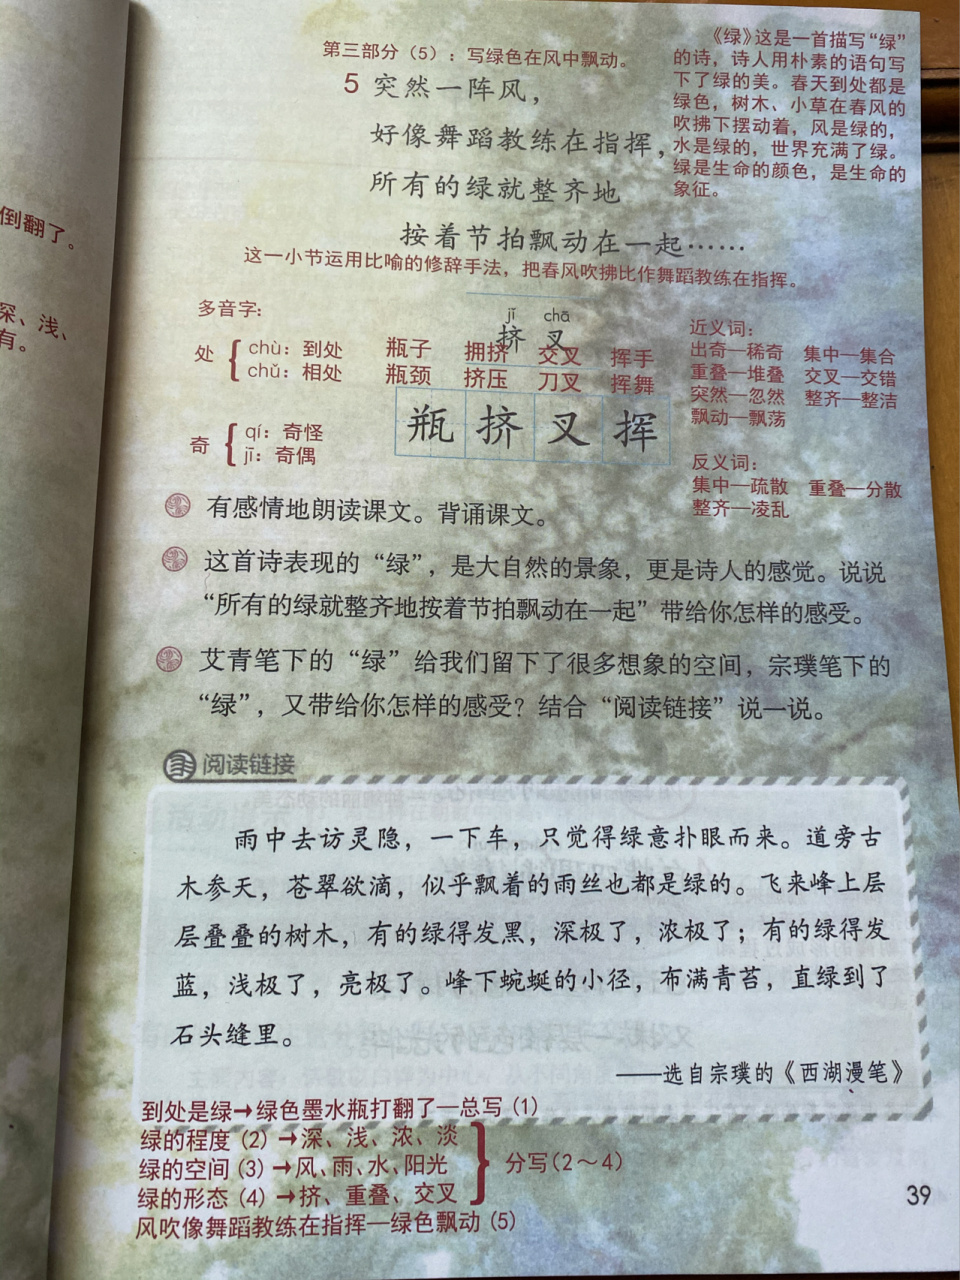 倒翻了。
深、浅、
有。
第三部分（5）：写绿色在风中飘动。
5 突然一阵风，
好像舞蹈教练在指挥，
所有的绿就整齐地
按着节拍飘动在一起……
这一小节运用比喻的修辞手法，把春风吹拂比作舞蹈教练在指挥。
《绿》这是一首描写“绿”
的诗，诗人用朴素的语句写
下了绿的美。春天到处都是
绿色，树木、小草在春风的
吹拂下摆动着，风是绿的，
水是绿的，世界充满了绿。
绿是生命的颜色，是生命的
象征。
多音字：
处
chù：到处
chǔ：相处
奇
qí：奇怪
jī：奇偶
jǐ chā
挤 叉
瓶子 拥挤 交叉 挥手
瓶颈 挤压 刀叉 挥舞
瓶 挤 叉 挥
近义词：
出奇—稀奇 集中—集合
重叠—堆叠 交叉—交错
突然—忽然 整齐—整洁
飘动—飘荡
反义词：
集中—疏散 重叠—分散
整齐—凌乱
有感情地朗读课文。背诵课文。
这首诗表现的“绿”，是大自然的景象，更是诗人的感觉。说说
“所有的绿就整齐地按着节拍飘动在一起”带给你怎样的感受。
艾青笔下的“绿”给我们留下了很多想象的空间，宗璞笔下的
“绿”，又带给你怎样的感受？结合“阅读链接”说一说。
阅读链接
雨中去访灵隐，一下车，只觉得绿意扑眼而来。道旁古
木参天，苍翠欲滴，似乎飘着的雨丝也都是绿的。飞来峰上层
层叠叠的树木，有的绿得发黑，深极了，浓极了；有的绿得发
蓝，浅极了，亮极了。峰下蜿蜒的小径，布满青苔，直绿到了
石头缝里。
——选自宗璞的《西湖漫笔》
到处是绿→绿色墨水瓶打翻了—总写（1）
绿的程度（2）→深、浅、浓、淡
绿的空间（3）→风、雨、水、阳光
绿的形态（4）→挤、重叠、交叉
分写（2～4）
风吹像舞蹈教练在指挥—绿色飘动（5）
39